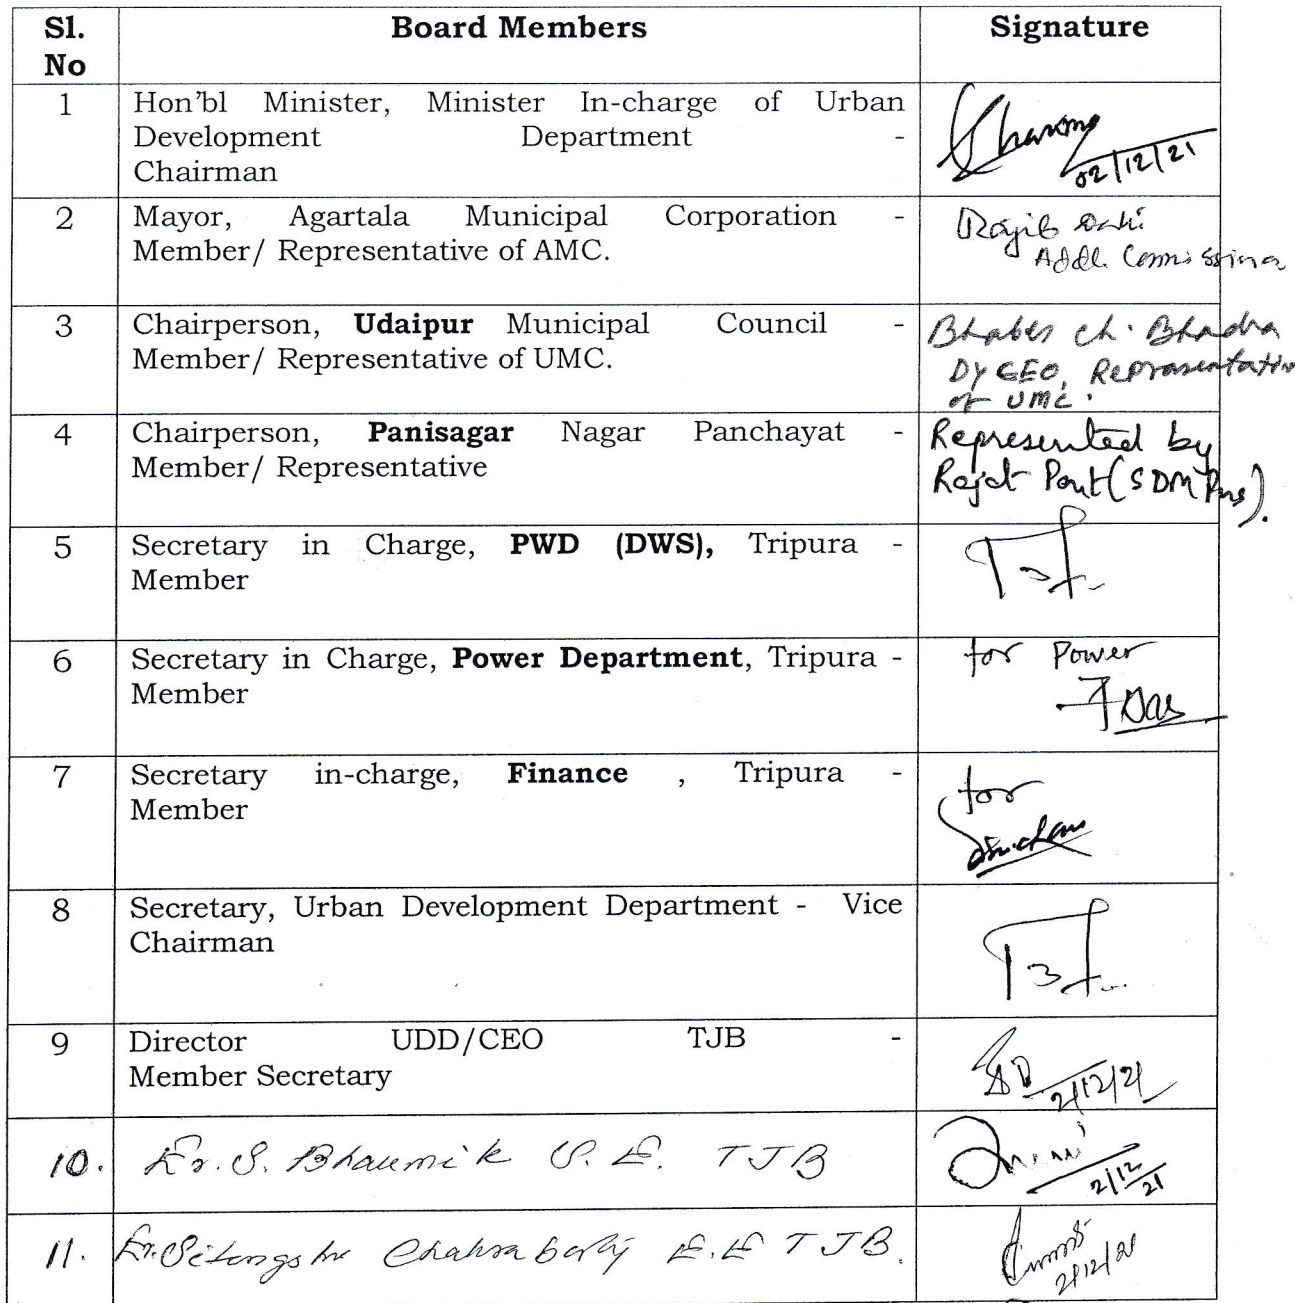 Sl. No Board Members Signature
1 Hon'bl Minister, Minister In-charge of Urban
Development Department -
Chairman
02/12/21
2 Mayor, Agartala Municipal Corporation -
Member/ Representative of AMC.
Rajib
Addl. Commissioner
3 Chairperson, Udaipur Municipal Council -
Member/ Representative of UMC.
Bhabes ch. Bhadra
Dy CEO, Representative
of UMC.
4 Chairperson, Panisagar Nagar Panchayat -
Member/ Representative
Represented by
Rajat Pant (SDM Pns).
5 Secretary in Charge, PWD (DWS), Tripura -
Member
6 Secretary in Charge, Power Department, Tripura -
Member
for Power
Das
7 Secretary in-charge, Finance , Tripura -
Member
for
8 Secretary, Urban Development Department - Vice
Chairman
9 Director UDD/CEO TJB -
Member Secretary
2/12/21
10. Er. S. Bhaumik S.E. TJB
2/12/21
11. Er. Sitangshu Chakraborty E.E TJB.
2/12/21